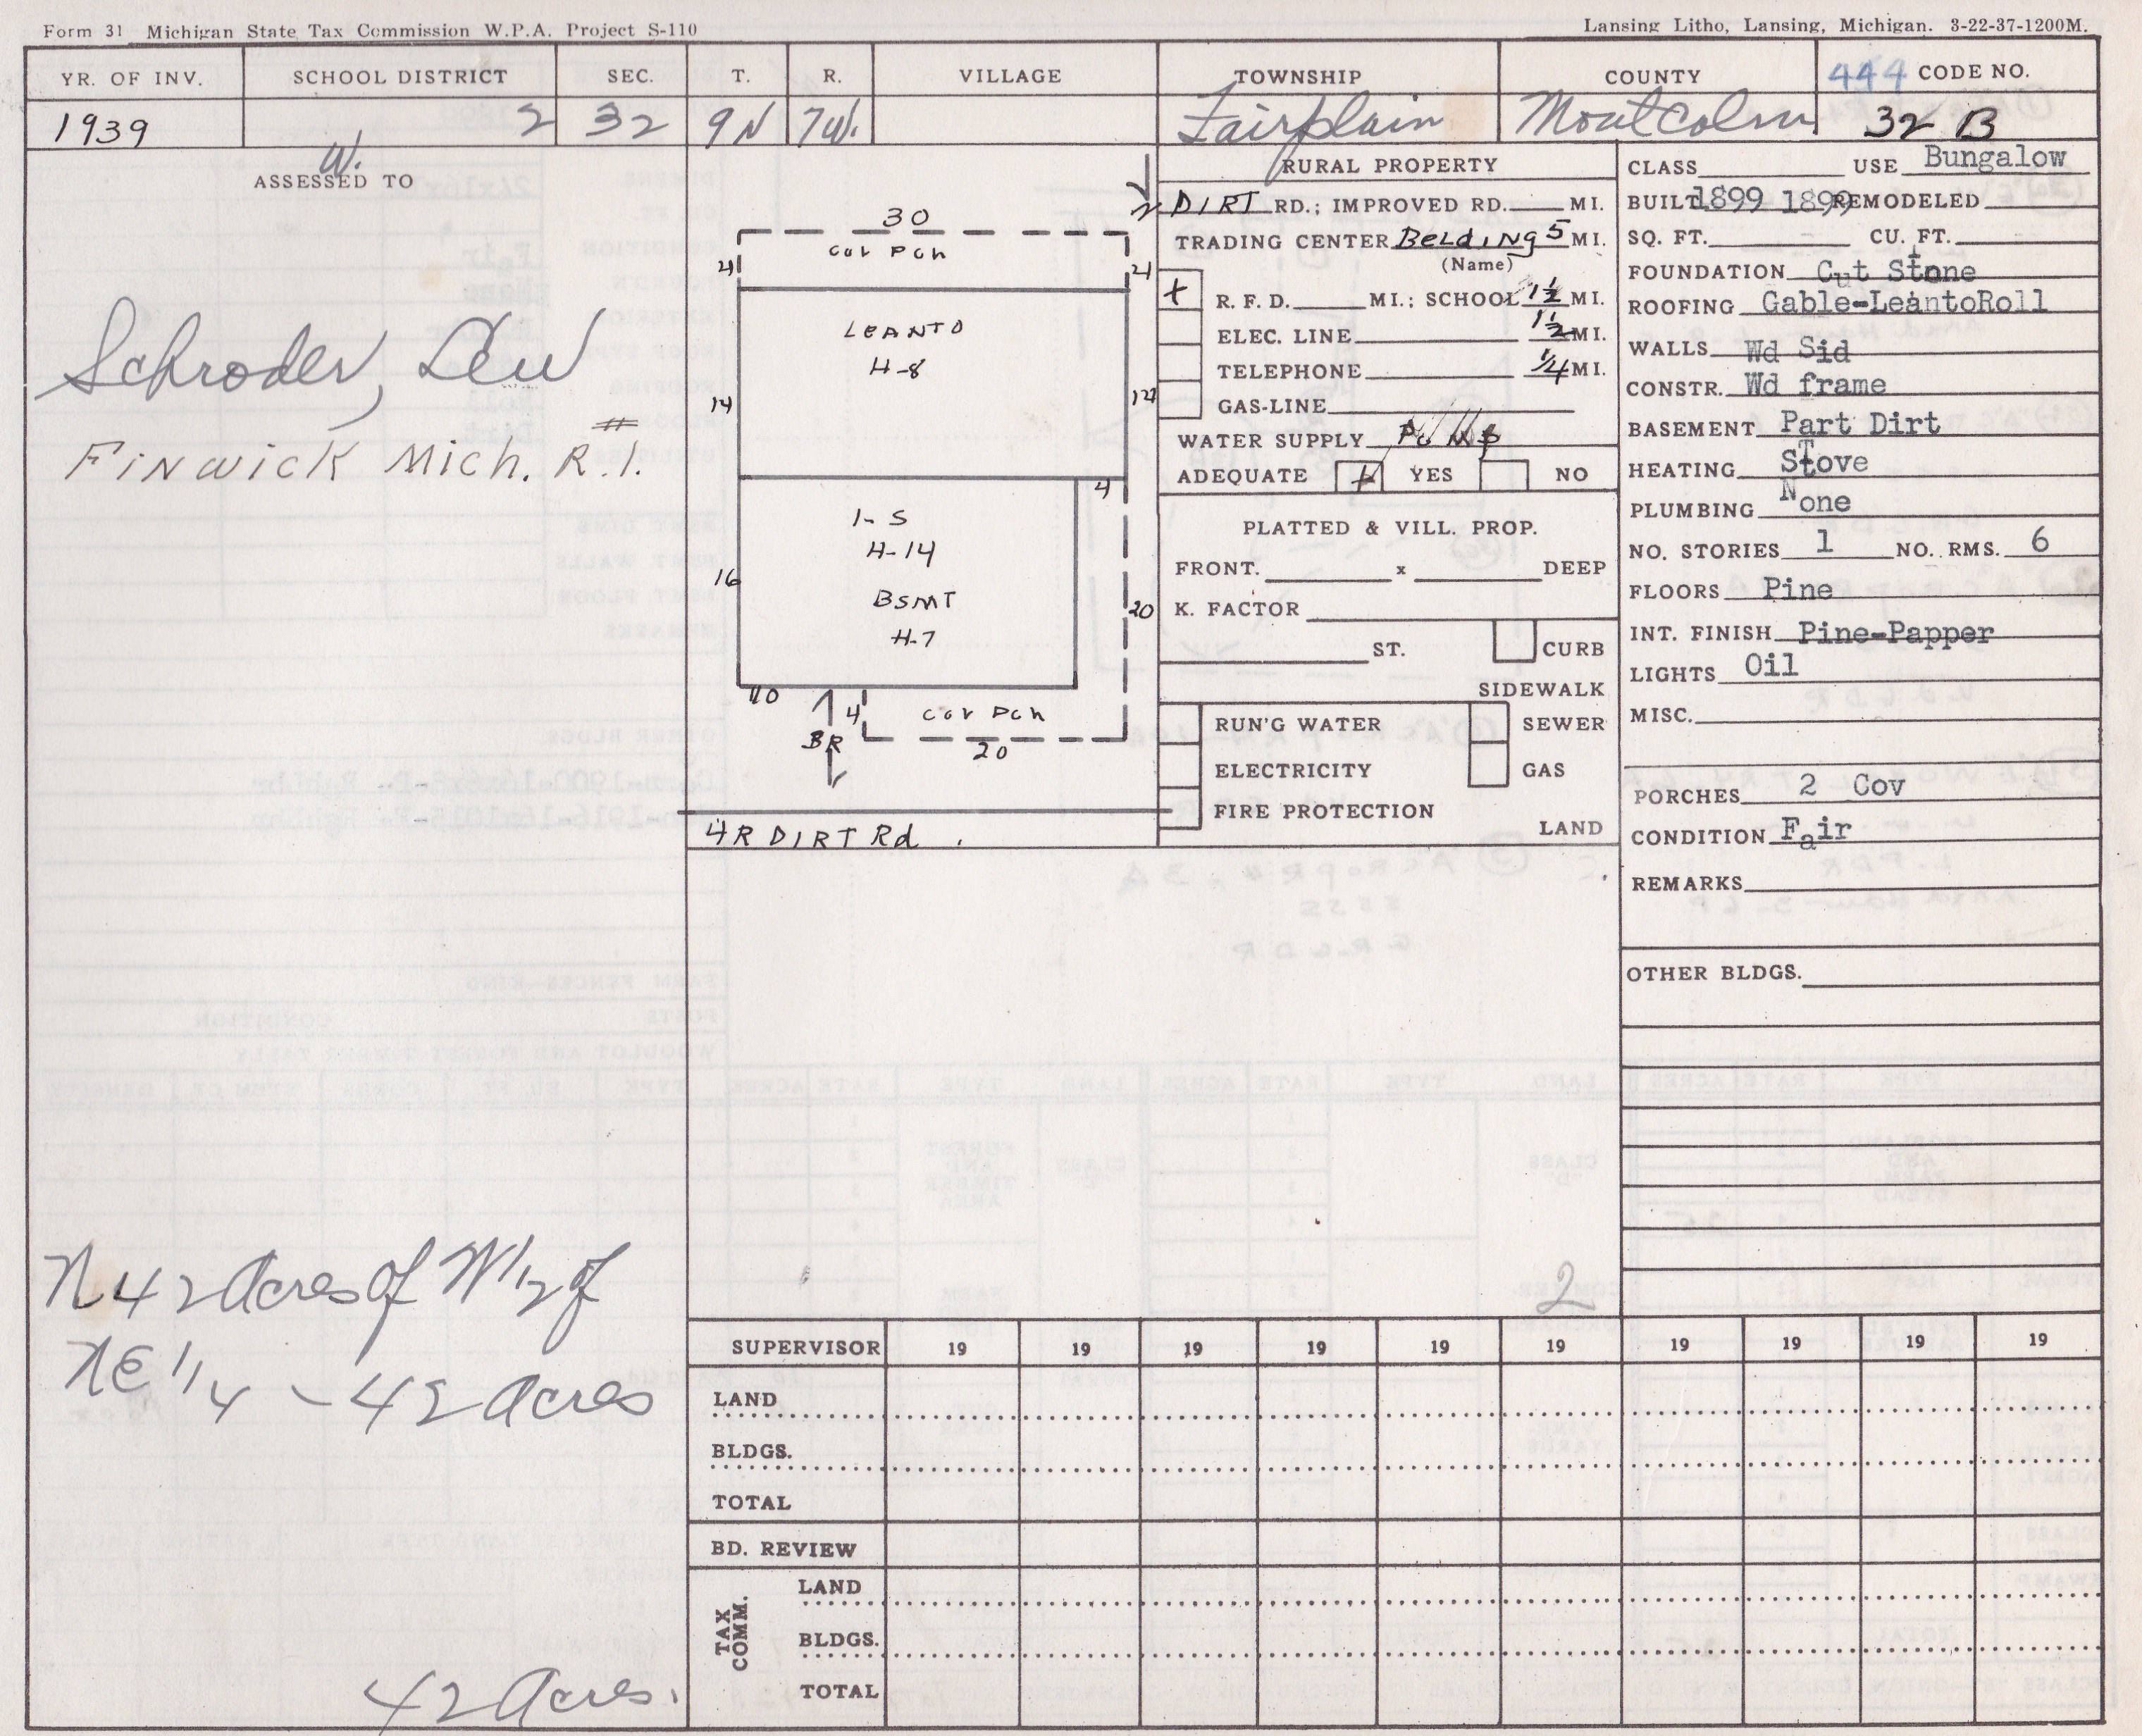 Form 31 Michigan State Tax Commission W.P.A. Project S-110
Lansing Litho, Lansing, Michigan. 3-22-37-1200M.
YR. OF INV. SCHOOL DISTRICT SEC. T. R. VILLAGE TOWNSHIP COUNTY 444 CODE NO.
1939 2 32 9N 7W. Fairplain Montcalm 32 B
W.
ASSESSED TO
Schroder, Lew
Finwick Mich. R.#1.
N 42 Acres of W 1/2 of
NE 1/4 - 42 Acres
42 Acres.
30
4 Cov Pch 4
LEANTO
H-8
14 14
4
1-S
H-14
16
BSMT
H-7
20
10 4 Cov Pch
BR 20
4R DIRT Rd.
RURAL PROPERTY
DIRT RD.; IMPROVED RD. MI.
TRADING CENTER Belding 5 MI.
(Name)
+ R. F. D. MI.; SCHOOL 1 1/2 MI.
ELEC. LINE 1/2 MI.
TELEPHONE 1/4 MI.
GAS-LINE
WATER SUPPLY Pump
ADEQUATE + YES NO
PLATTED & VILL. PROP.
FRONT. x DEEP
K. FACTOR
ST. CURB
SIDEWALK
RUN'G WATER SEWER
ELECTRICITY GAS
FIRE PROTECTION
LAND
CLASS USE Bungalow
BUILT 1899 1899 REMODELED
SQ. FT. CU. FT.
FOUNDATION Cut Stone
ROOFING Gable-LeantoRoll
WALLS Wd Sid
CONSTR. Wd frame
BASEMENT Part Dirt
HEATING Stove
PLUMBING None
NO. STORIES 1 NO. RMS. 6
FLOORS Pine
INT. FINISH Pine-Papper
LIGHTS Oil
MISC.
PORCHES 2 Cov
CONDITION Fair
REMARKS
OTHER BLDGS.
2
SUPERVISOR 19 19 19 19 19 19 19 19 19 19
LAND
BLDGS.
TOTAL
BD. REVIEW
TAX COMM.
LAND
BLDGS.
TOTAL